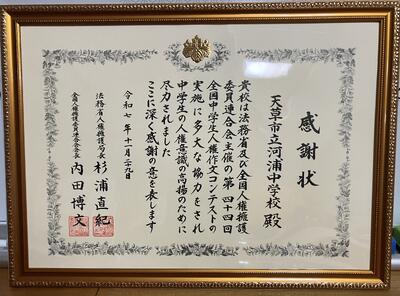 感謝状
天草市立河浦中学校 殿
貴校は法務省及び全国人権擁護
委員連合会主催の第四十四回
全国中学生人権作文コンテストの
実施に多大な協力をされ
中学生の人権意識の高揚のために
尽力されました
ここに深く感謝の意を表します
令和七年十一月二十九日
法務省人権擁護局長 杉浦直紀
全国人権擁護委員連合会会長 内田博文